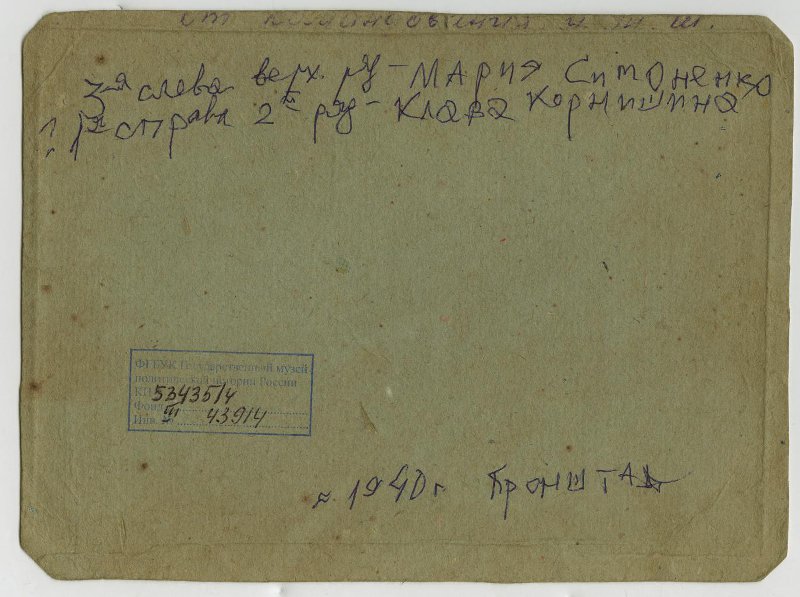 от командования и т.ш.
3я слева верх. ряд - МАРИЯ Симоненко
1я справа 2й ряд - Клава Корнишина
ФГБУК Государственный музей
политической истории России
КП 53435/4
Фонд III
Инв. № 43914
≈ 1940 г Кронштадт